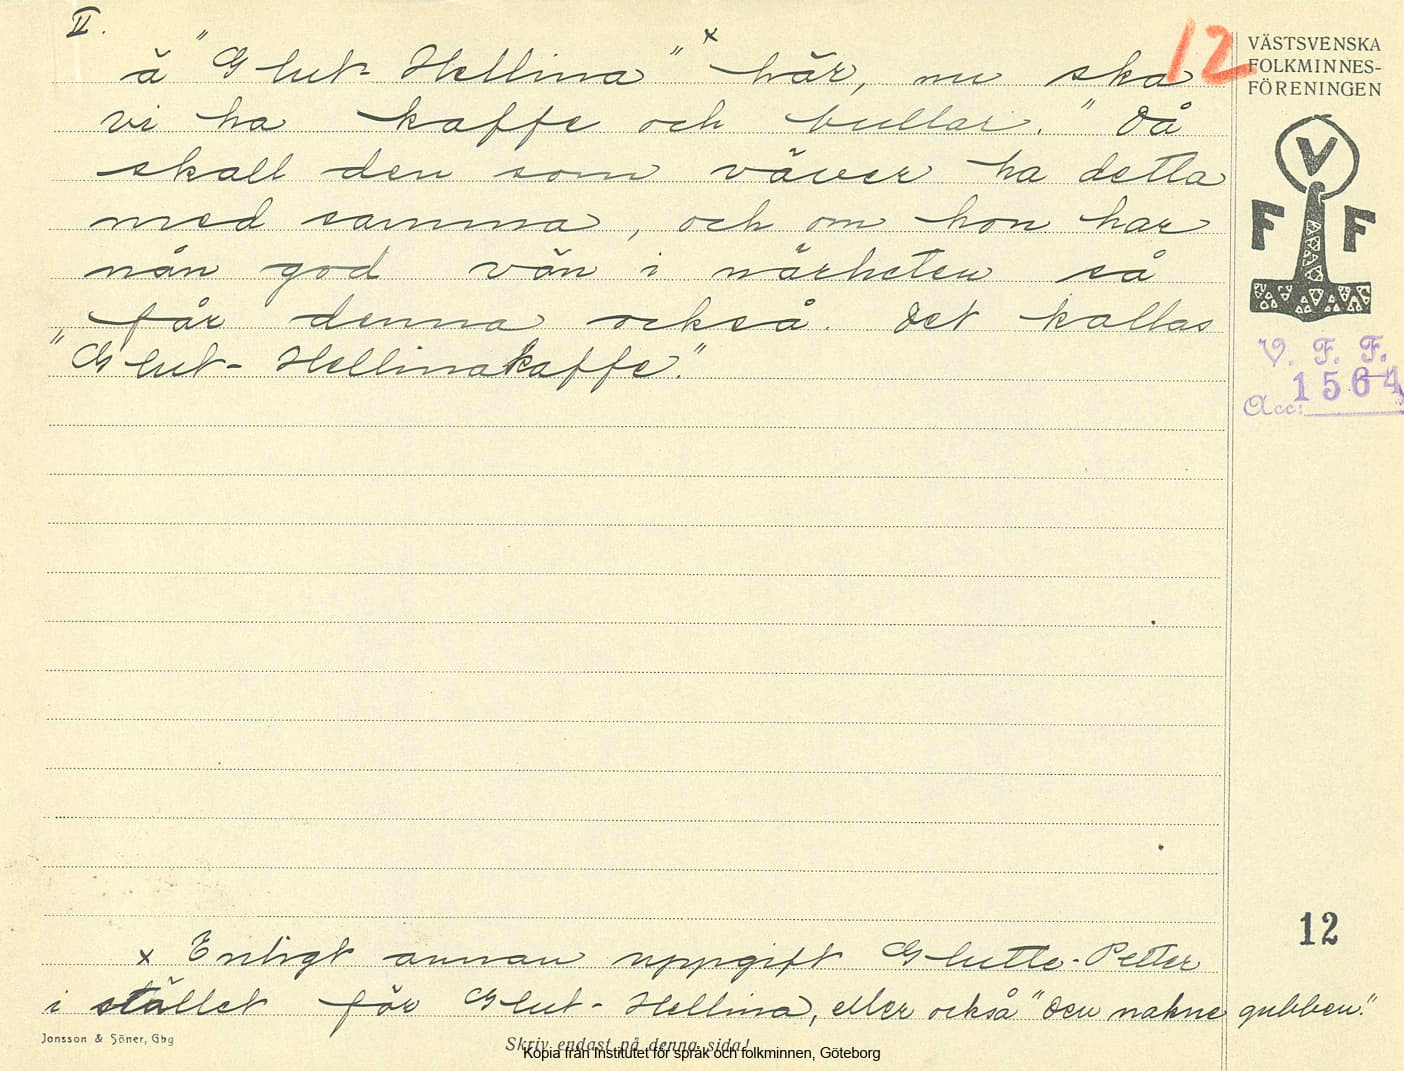 II.
å "Glut-Hellina" x här, nu ska
vi ha kaffe och bullar." Då
skall den som väver ha detta
med samma, och om hon har
nån god vän i närheten så
får denna också. Det kallas
"Glut-Hellinakaffe."
x Enligt annan uppgift Glutte-Petter
i stället för Glut-Hellina, eller också "den nakne gubben."
12
VÄSTSVENSKA
FOLKMINNES-
FÖRENINGEN
V
F F
V. F. F.
Acc: 1564
12
Jonsson & Söner, Gbg
Skriv endast på denna sida!
Kopia från Institutet för språk och folkminnen, Göteborg